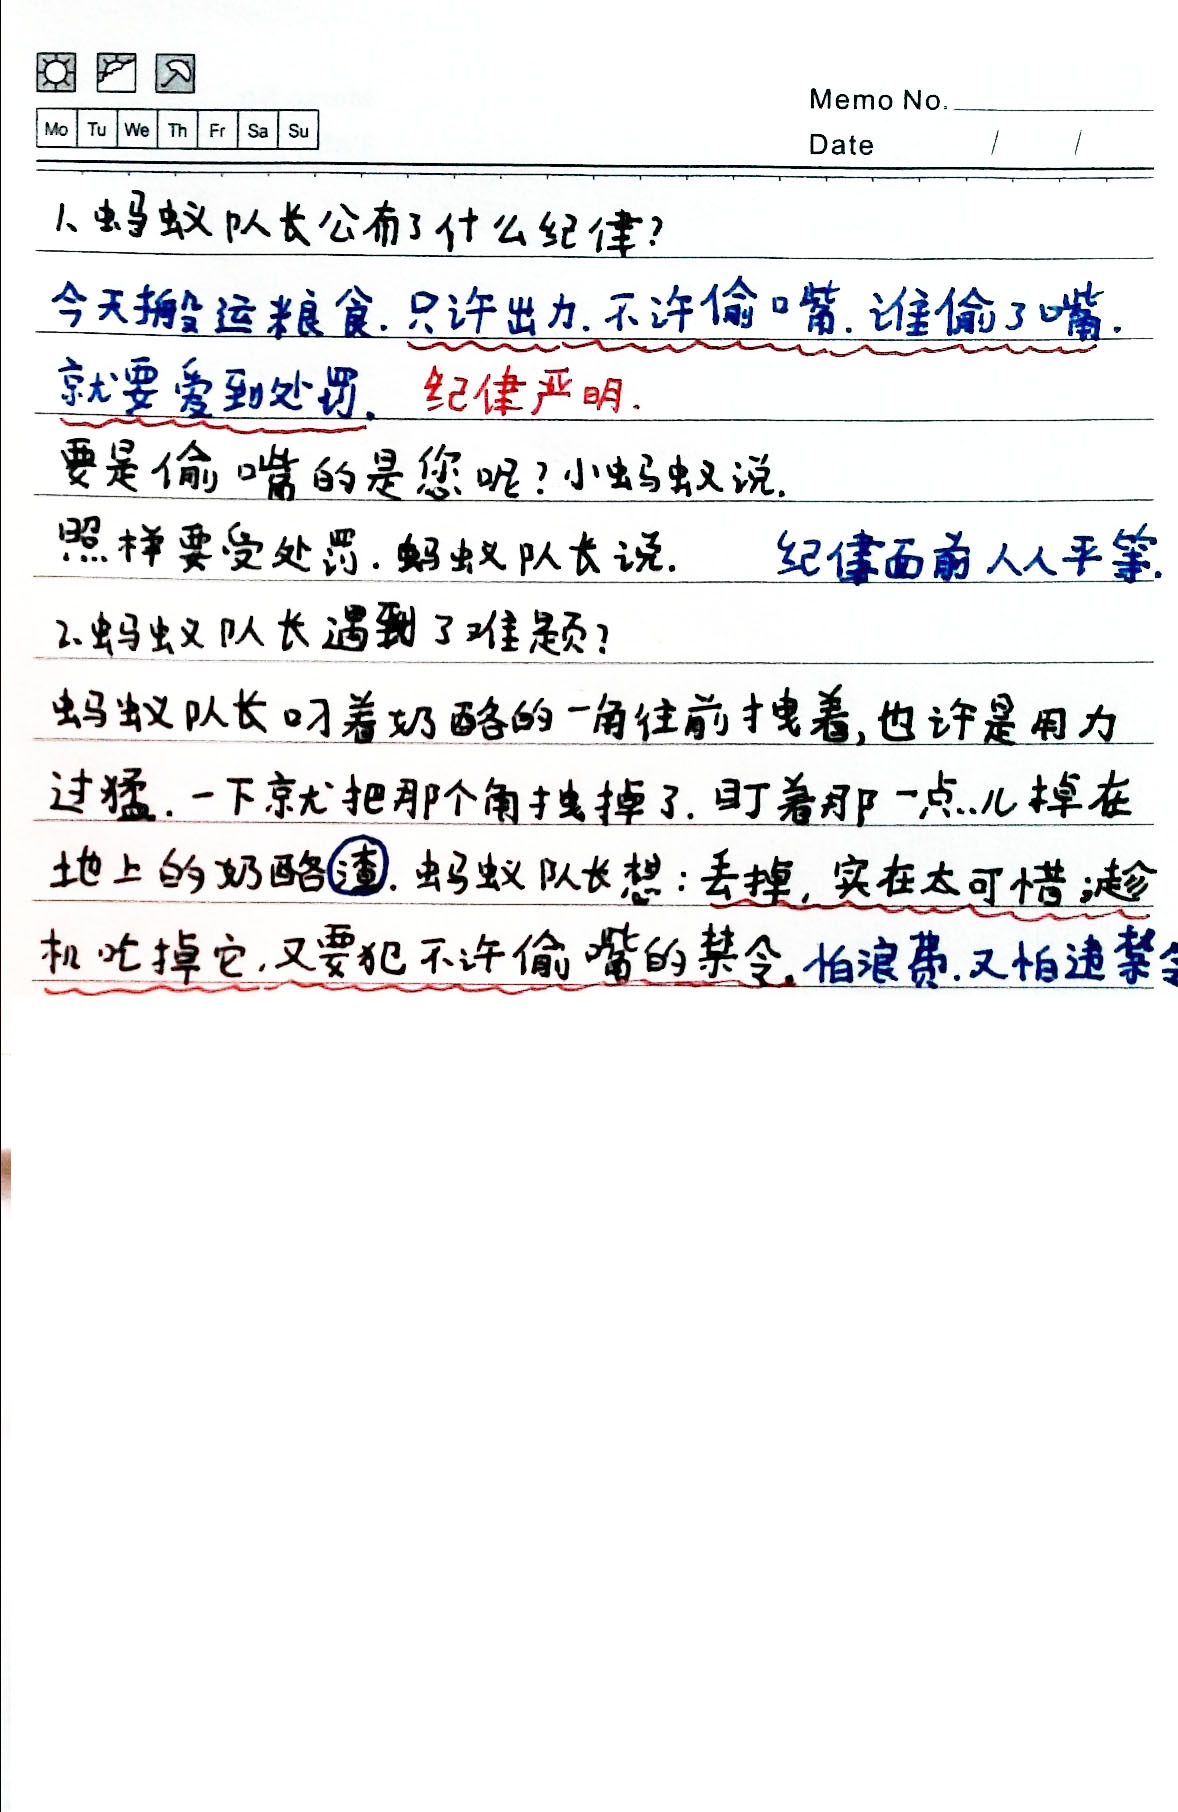 Mo Tu We Th Fr Sa Su
Memo No.
Date / /
1、蚂蚁队长公布了什么纪律?
今天搬运粮食.只许出力.不许偷嘴.谁偷了嘴.
就要受到处罚. 纪律严明.
要是偷嘴的是您呢?小蚂蚁说.
照样要受处罚.蚂蚁队长说. 纪律面前人人平等.
2.蚂蚁队长遇到了难题?
蚂蚁队长叼着奶酪的一角往前拽着,也许是用力
过猛.一下就把那个角拽掉了.盯着那一点儿掉在
地上的奶酪渣.蚂蚁队长想:丢掉,实在太可惜;趁
机吃掉它.又要犯不许偷嘴的禁令.怕浪费.又怕违禁令